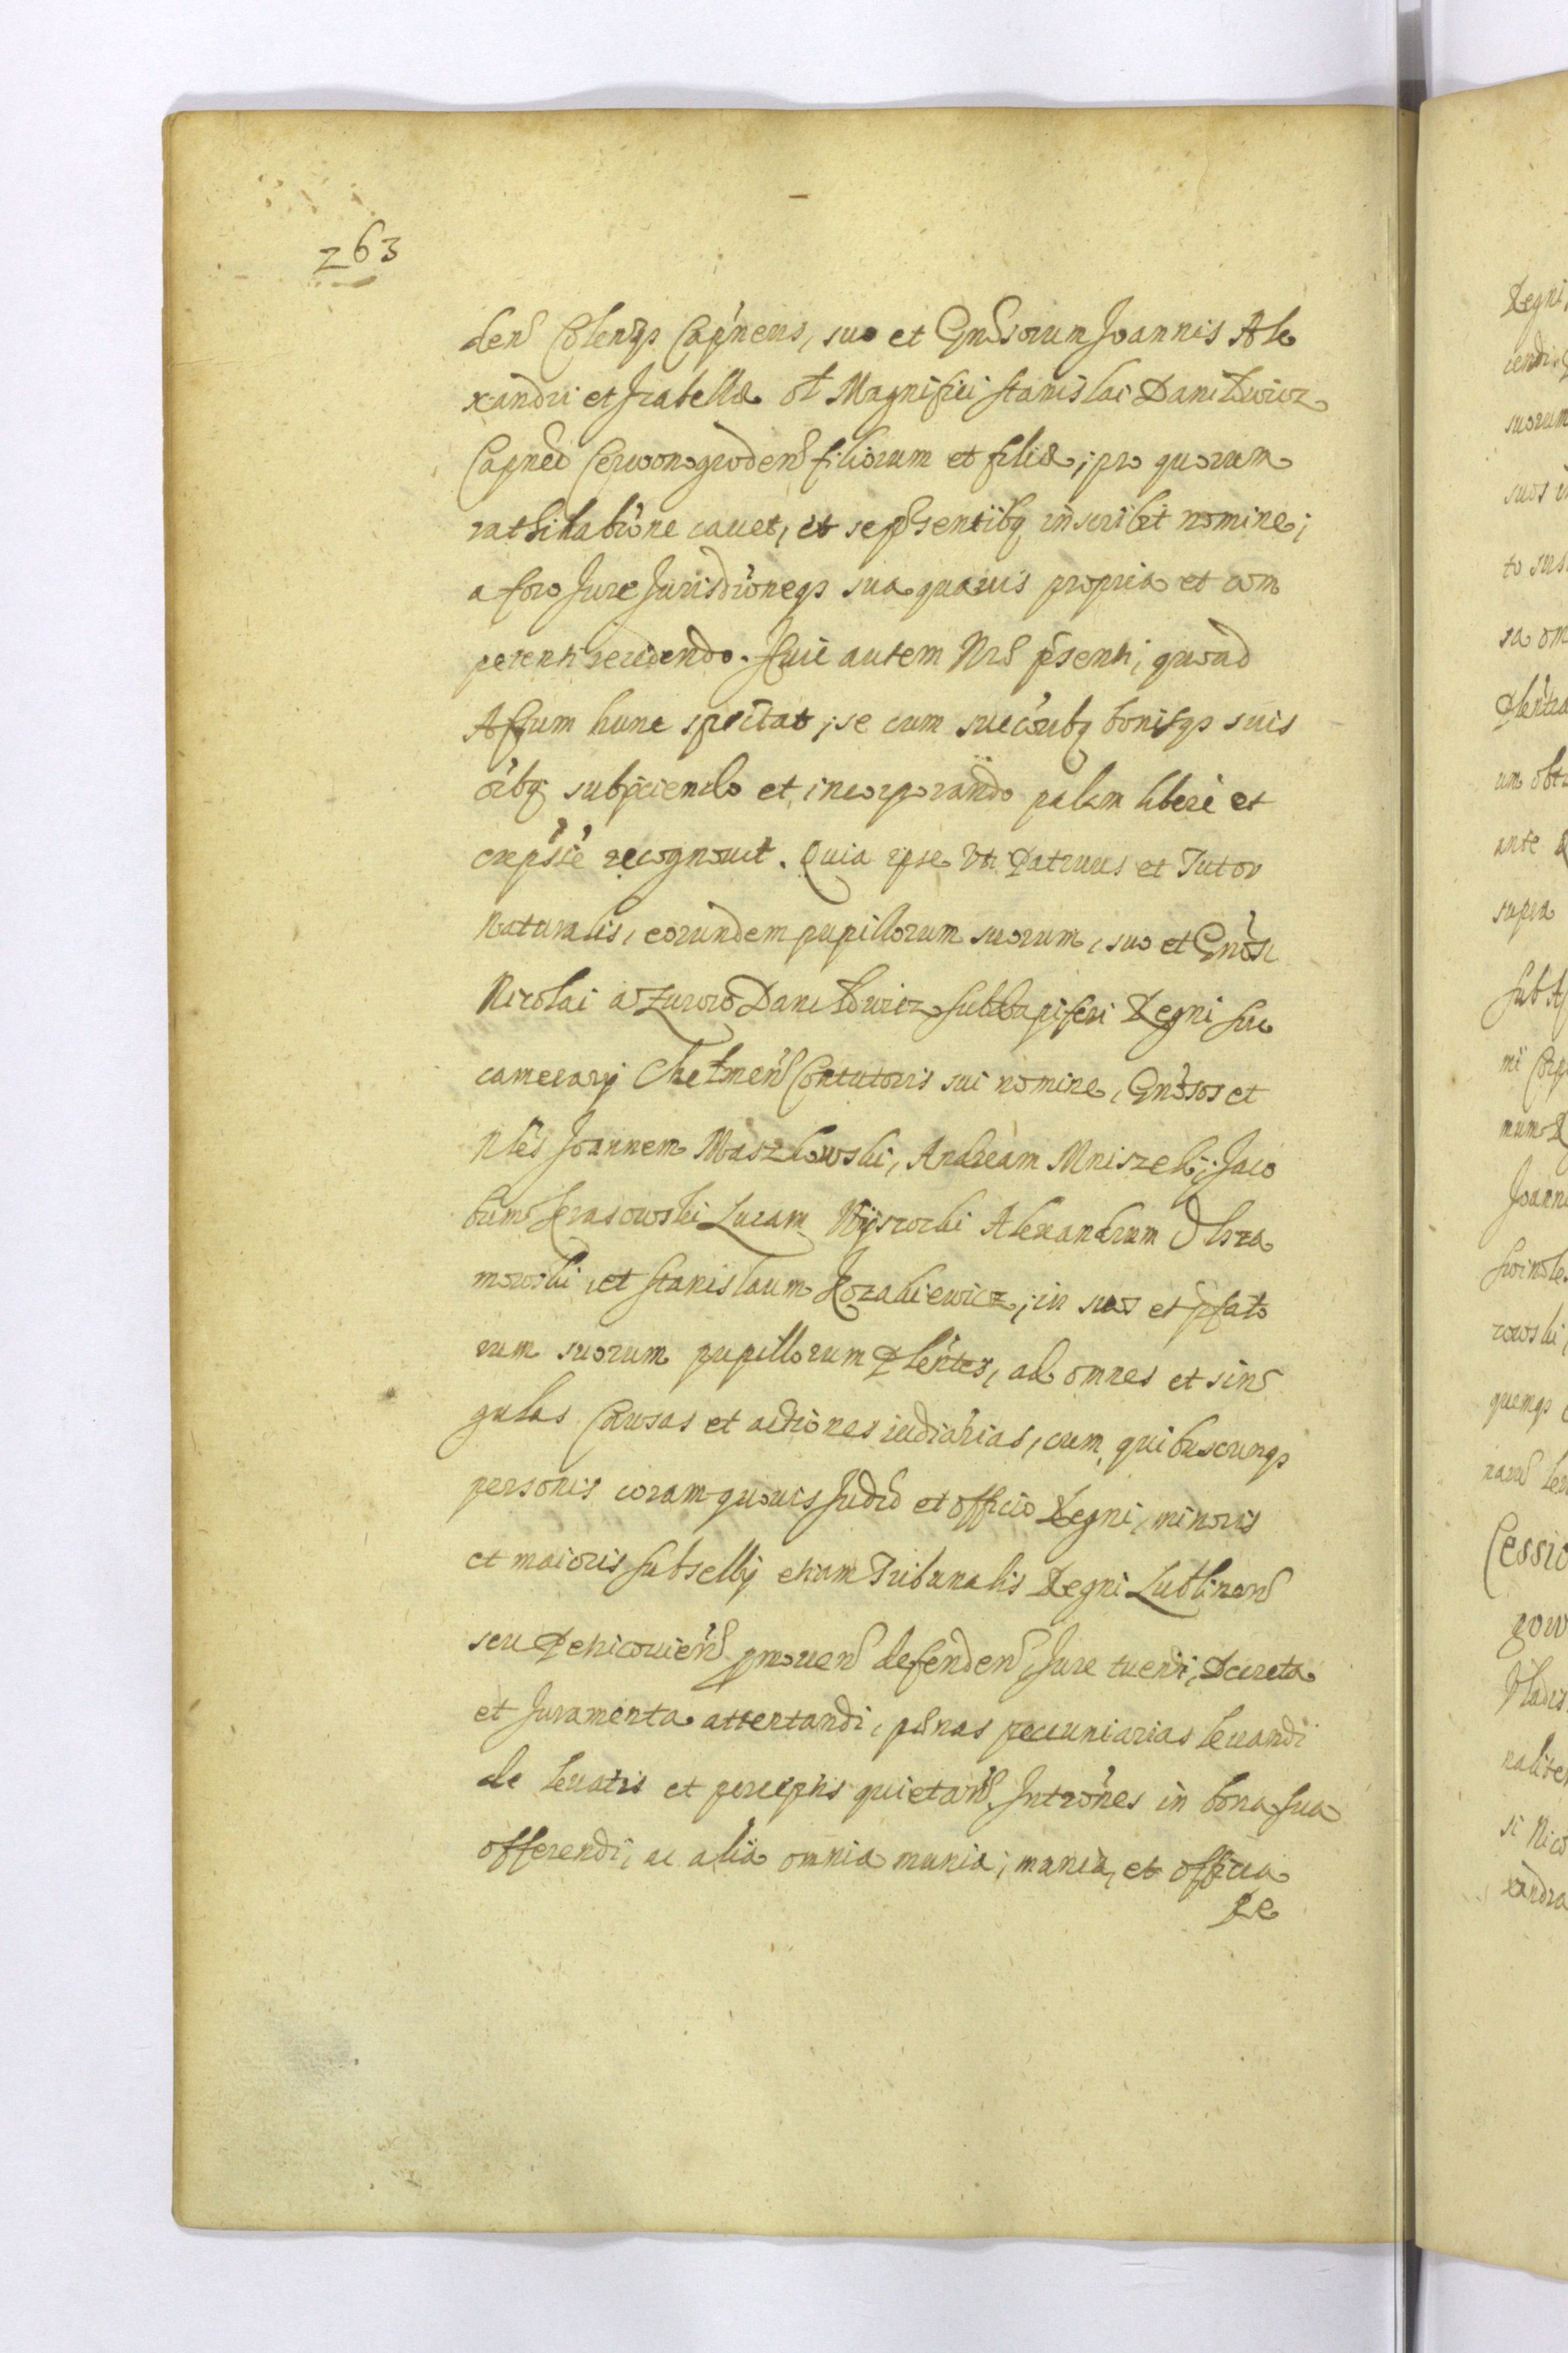 263
dens Colensqs Capneus, suo et Gnosorum Joannis Ale
xandri et Izabellæ ol Magnifici Stanislai Daniłowicz
Capnei Czerwonogrodens filiorum et filiæ; pro quorum
rathihabitione cauet, et se psentibq inscribit nomine;
a foro Jure Jurisdioneqs sua quauis propria et com
petenti recedendo. Huic autem Nro psenti, quoad
Actum hunc spectat; se cum succoribq bonisqs suis
oibq subijciendo et incorporando palam libere et
expsse recognouit. Quia ipse Vti Patruus et Tutor
Naturalis, eorundem pupillorum suorum, suo et Gnosi
Nicolai a Zurow Daniłowicz Subdapiferi Regni Suc
camerarij Chełmens Contutoris sui nomine, Gnosos et
Nles Joannem Maszkowski, Andream Mniszek, Jaco
bum Krasowski Lucam Wysocki Alexandrum Olsza
mowski, et Stanislaum Kozakiewicz; in suos et pfato
rum suorum pupillorum Plentes, ad omnes et sin
gulas Causas et actiones iudiarias, cum quibuscunqs
personis coram quouis Judio et officio Regni, minoris
et maioris Subsellij etiam Tribunalis Regni Lublinens
seu Petricouiens pmouens defendens, Jure tuendi, Decreta
et Juramenta attentandi, pænas pecuniarias leuandi
de leuatis et perceptis quietans. Intrones in bona sua
offerendi, ac alia omnia munia; munia, et officia
Re
Regni
cendi
suorum
suos
to
sa om
Plentia
um obt
ante
supra
Sub
ni Corp
num
Joann
Swinole
rowski
quemqs
nans
Cessio
gow
Vladis
nalite
si Nico
xandra